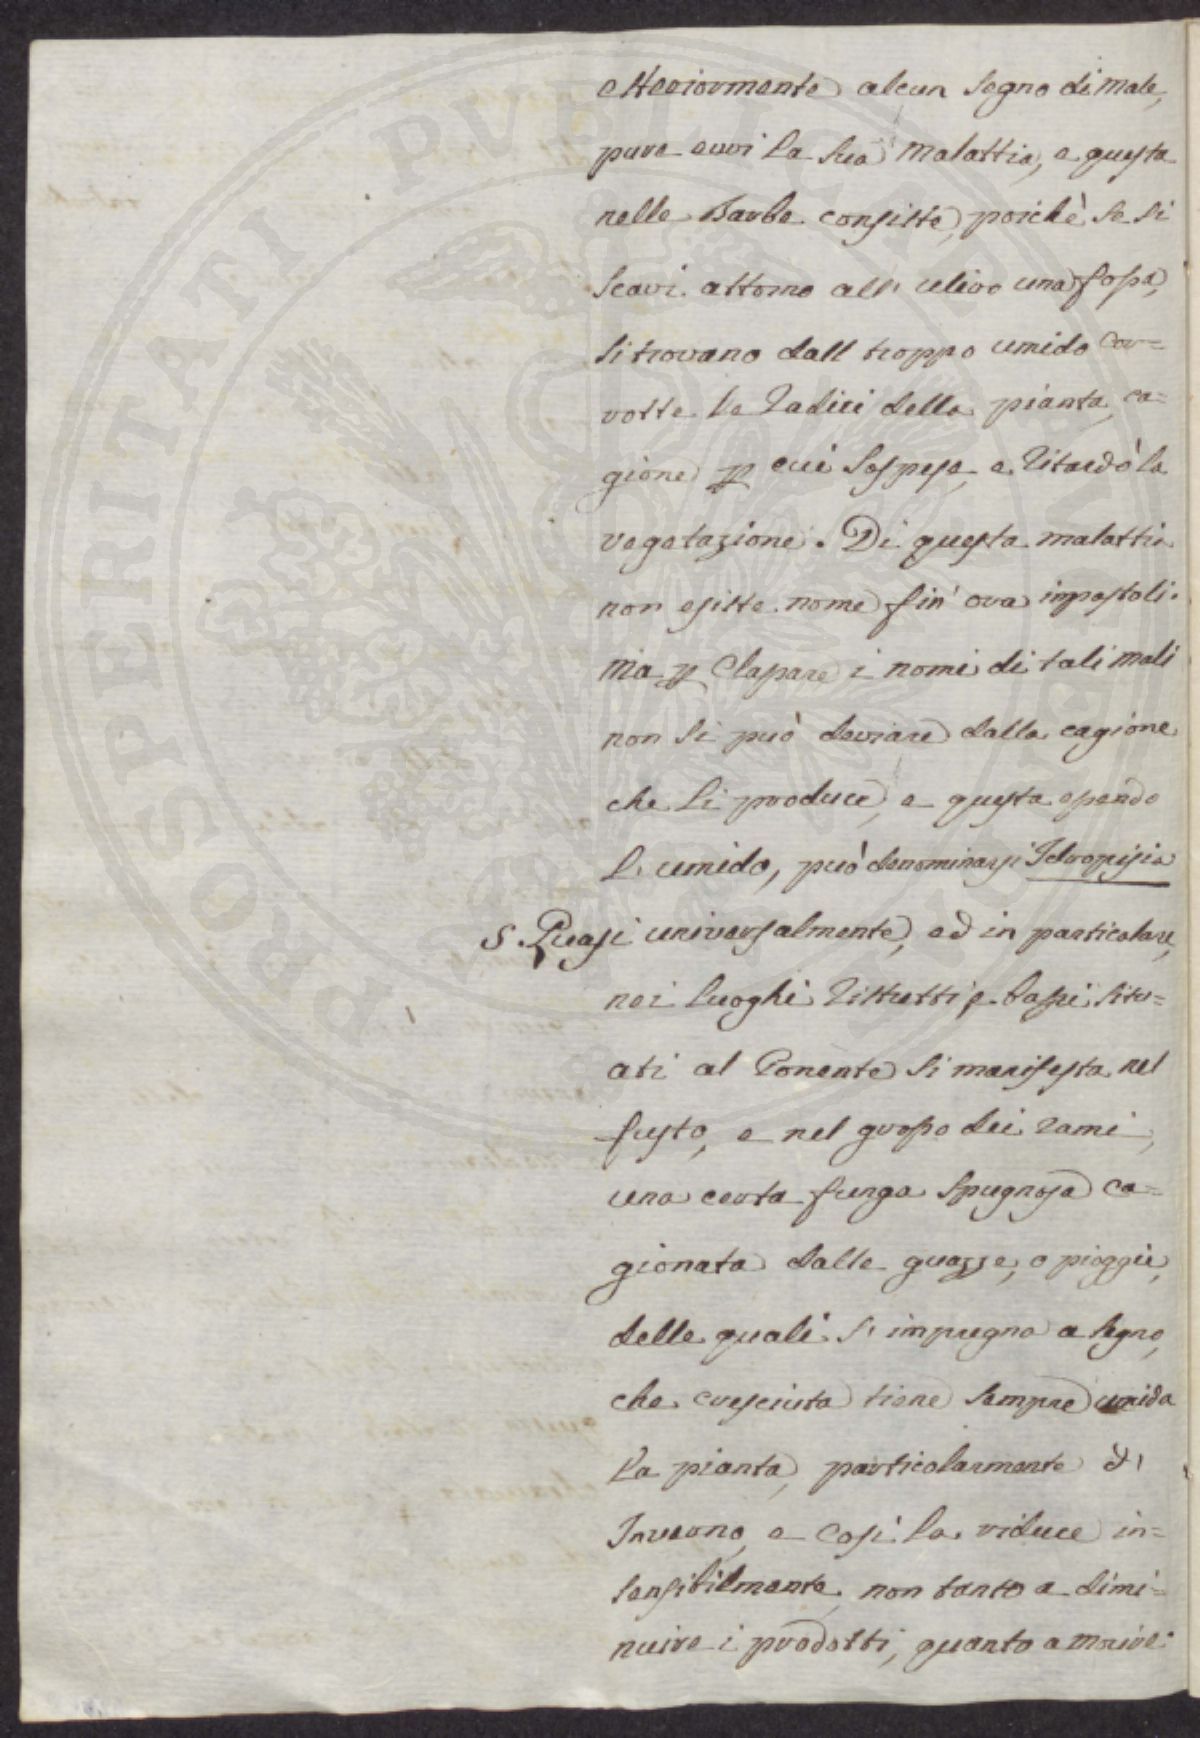 esteriormente alcun segno di male,
pure evvi la sua malattia, e questa
nelle Barbe consiste, poichè se si
scavi attorno all' ulivo una fossa,
si trovano dall troppo umido cor=
rotte le Radici della pianta, ca=
gione per cui sospese, e Ritardò la
vegetazione. Di questa malattia
non esiste nome fin' ora impostoli.
Ma per Classare i nomi di tali mali
non si può deviare dalla cagione
che li produce, e questa essendo
L' umido, può denominarsi Idropisia
5. Quasi universalmente, ed in particolare,
nei luoghi Ristretti e bassi situ=
ati al Ponente si manifesta nel
fusto, e nel grosso dei rami,
una certa funga spugnosa ca=
gionata dalle guazze, o pioggie,
delle quali s' impregna a segno,
che cresciuta tiene sempre umida
la pianta, particolarmente d'
Inverno, e così la riduce in=
sensibilmente, non tanto a dimi=
nuire i prodotti, quanto a morire:
PROSPERITATI PVBLICAE AVGENDAE